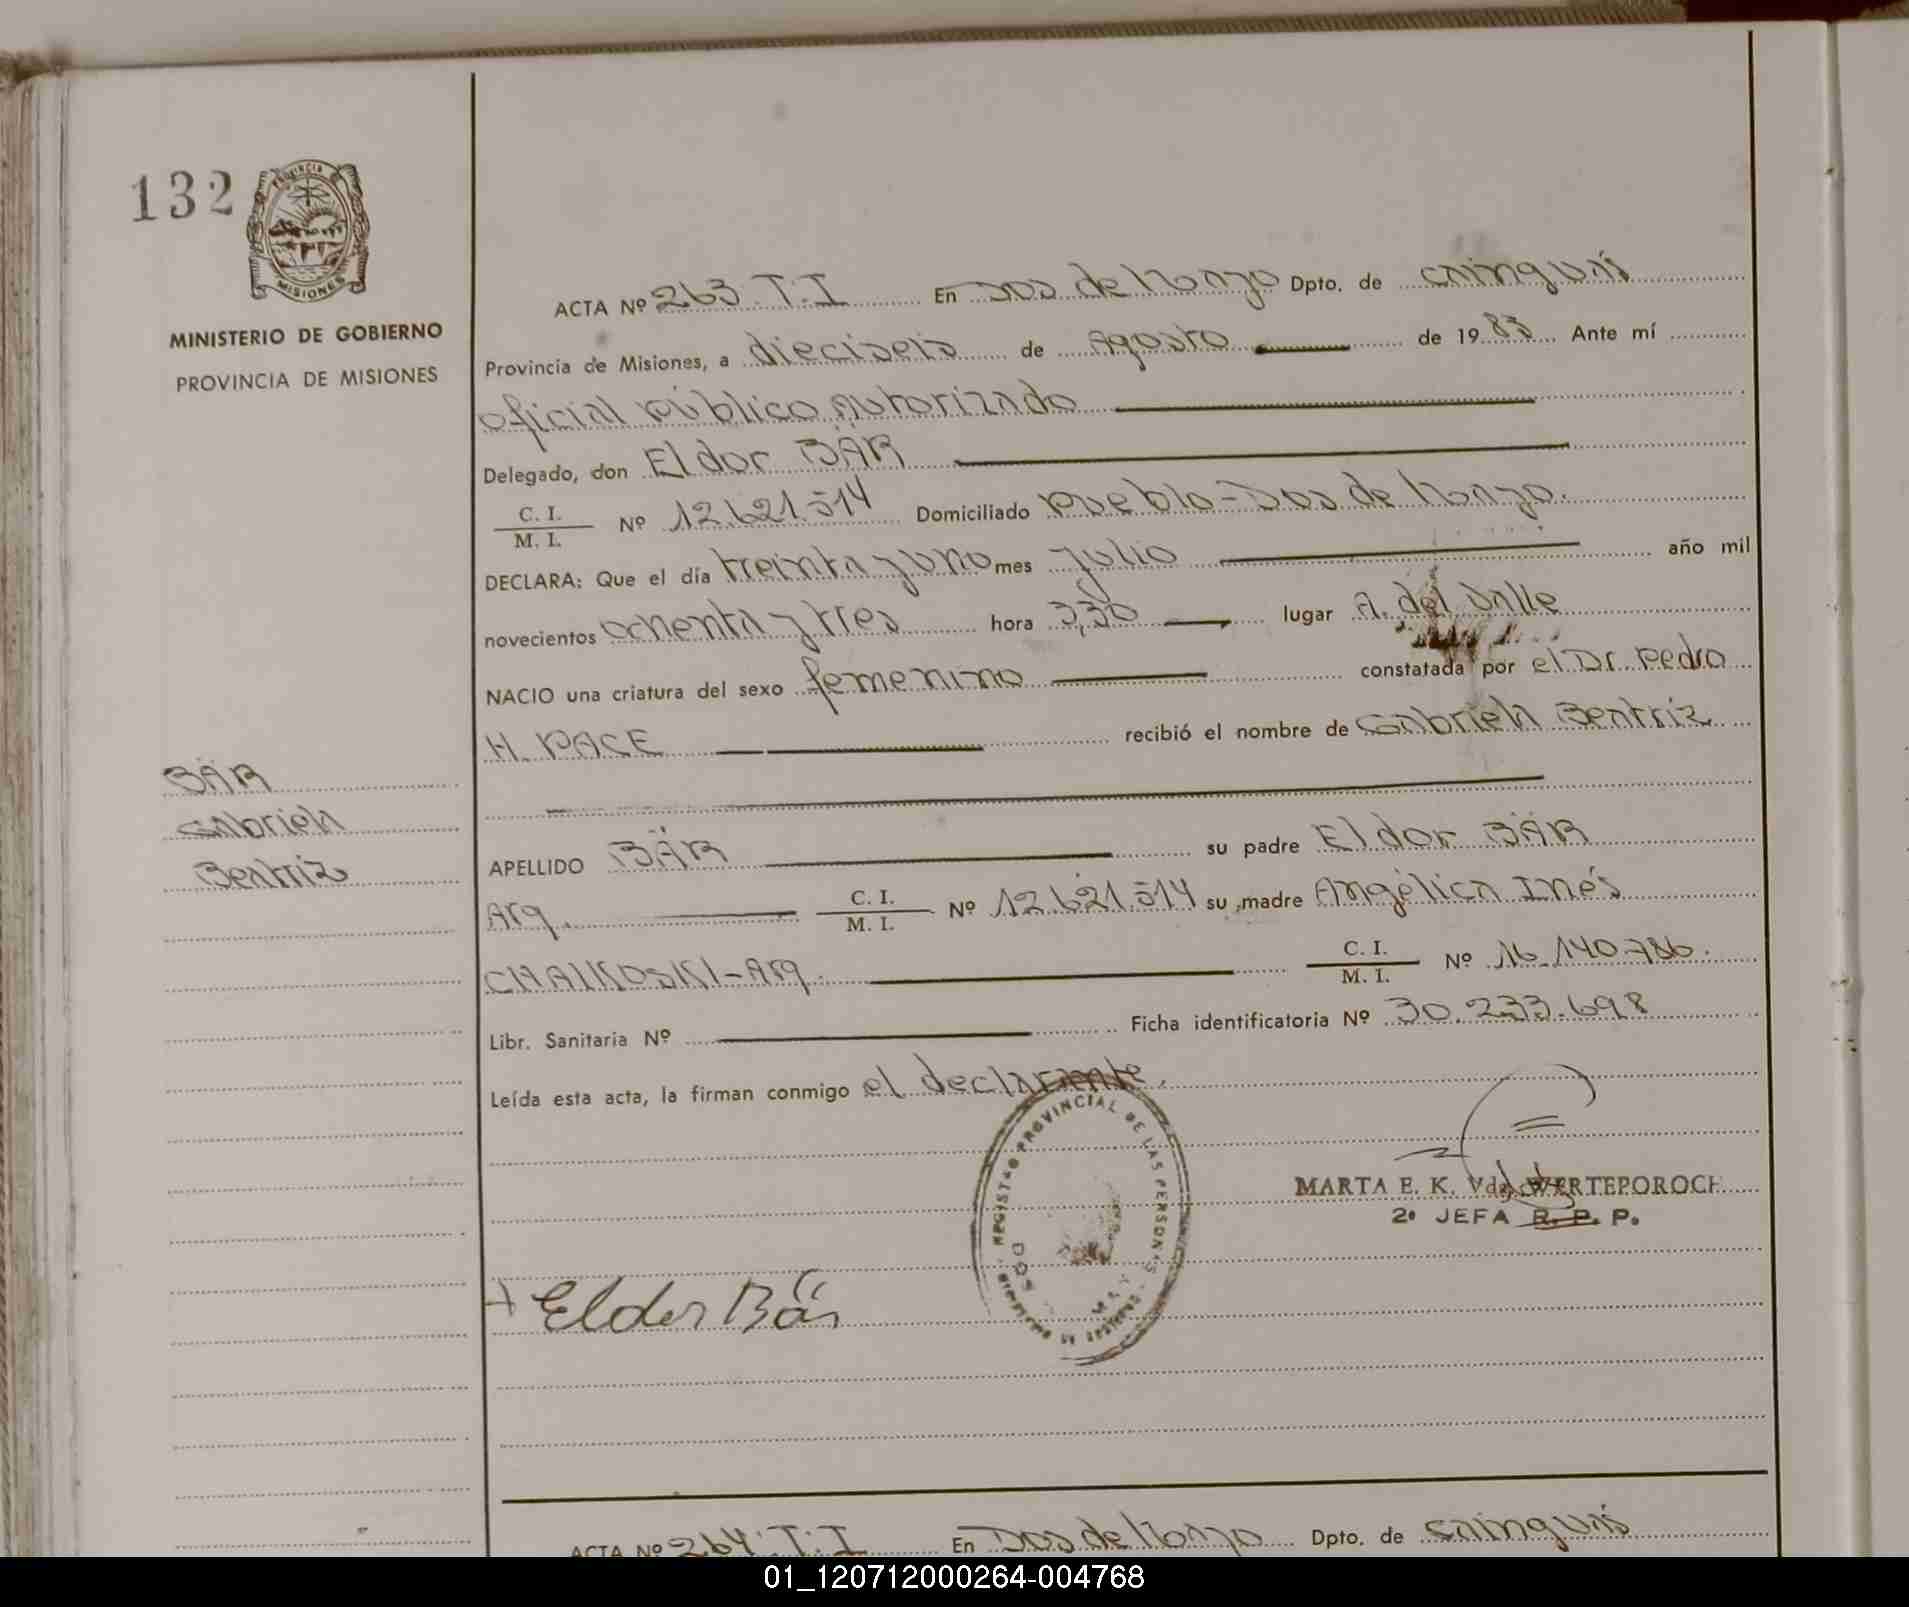 132
PROVINCIA
MISIONES
MINISTERIO DE GOBIERNO
PROVINCIA DE MISIONES
BÄR
Gabriela
Beatriz
ACTA Nº 263.T.I En Dos de Mayo Dpto. de Cainguás
Provincia de Misiones, a dieciseis de Agosto de 1983 Ante mí
oficial público autorizado
Delegado, don Eldor BÄR
C. I.
M. I. Nº 12.621.514 Domiciliado Pueblo-Dos de Mayo.
DECLARA: Que el día treinta y uno mes julio año mil
novecientos ochenta y tres hora 3,30 lugar A. del Valle
NACIO una criatura del sexo femenino constatada por el Dr. Pedro
H. PACE recibió el nombre de Gabriela Beatriz
APELLIDO BÄR su padre Eldor BÄR
Arq. C. I.
M. I. Nº 12.621.514 su madre Angélica Inés
CHAIKOSKI-Arq. C. I.
M. I. Nº 16.140.786.
Libr. Sanitaria Nº Ficha identificatoria Nº 30.233.698
Leída esta acta, la firman conmigo el declarante.
REGISTRO PROVINCIAL DE LAS PERSONAS
DOS
MARTA E. K. Vda. WERTEPOROCH
2º JEFA R. P. P.
Eldor Bär
ACTA Nº 264.T.I En Dos de Mayo Dpto. de Cainguás
01_120712000264-004768